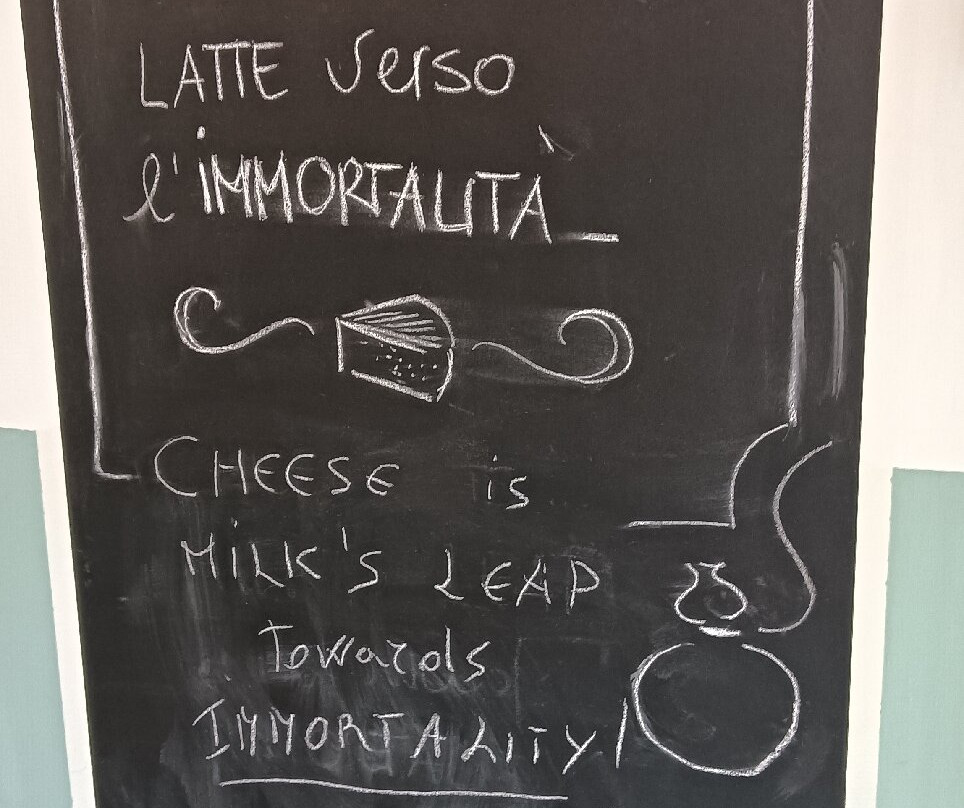 LATTE verso
l'IMMORTALITÀ
CHEESE is
MILK'S LEAP
Towards
IMMORTALITY!